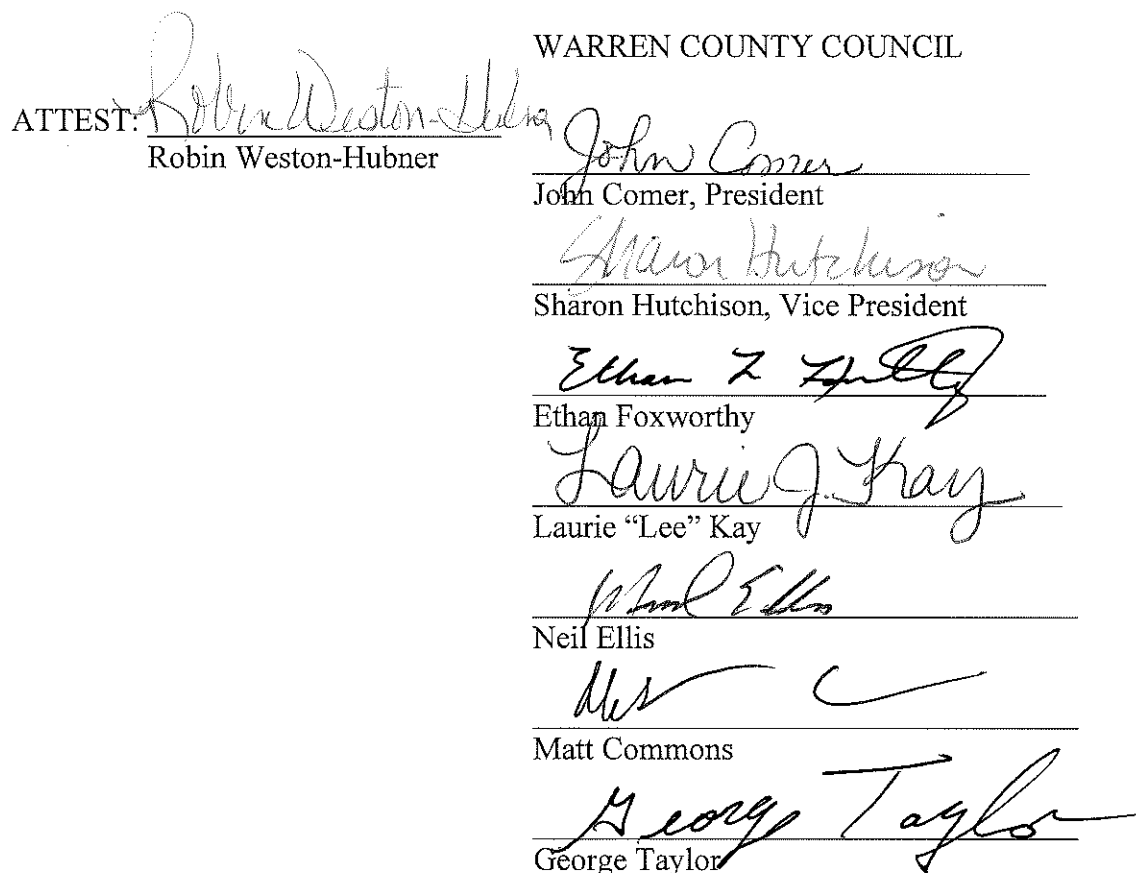 WARREN COUNTY COUNCIL
ATTEST: Robin Weston-Hubner
Robin Weston-Hubner
John Comer
John Comer, President
Sharon Hutchison
Sharon Hutchison, Vice President
Ethan
Ethan Foxworthy
Laurie J. Kay
Laurie “Lee” Kay
Ellis
Neil Ellis
Matt Commons
George Taylor
George Taylor